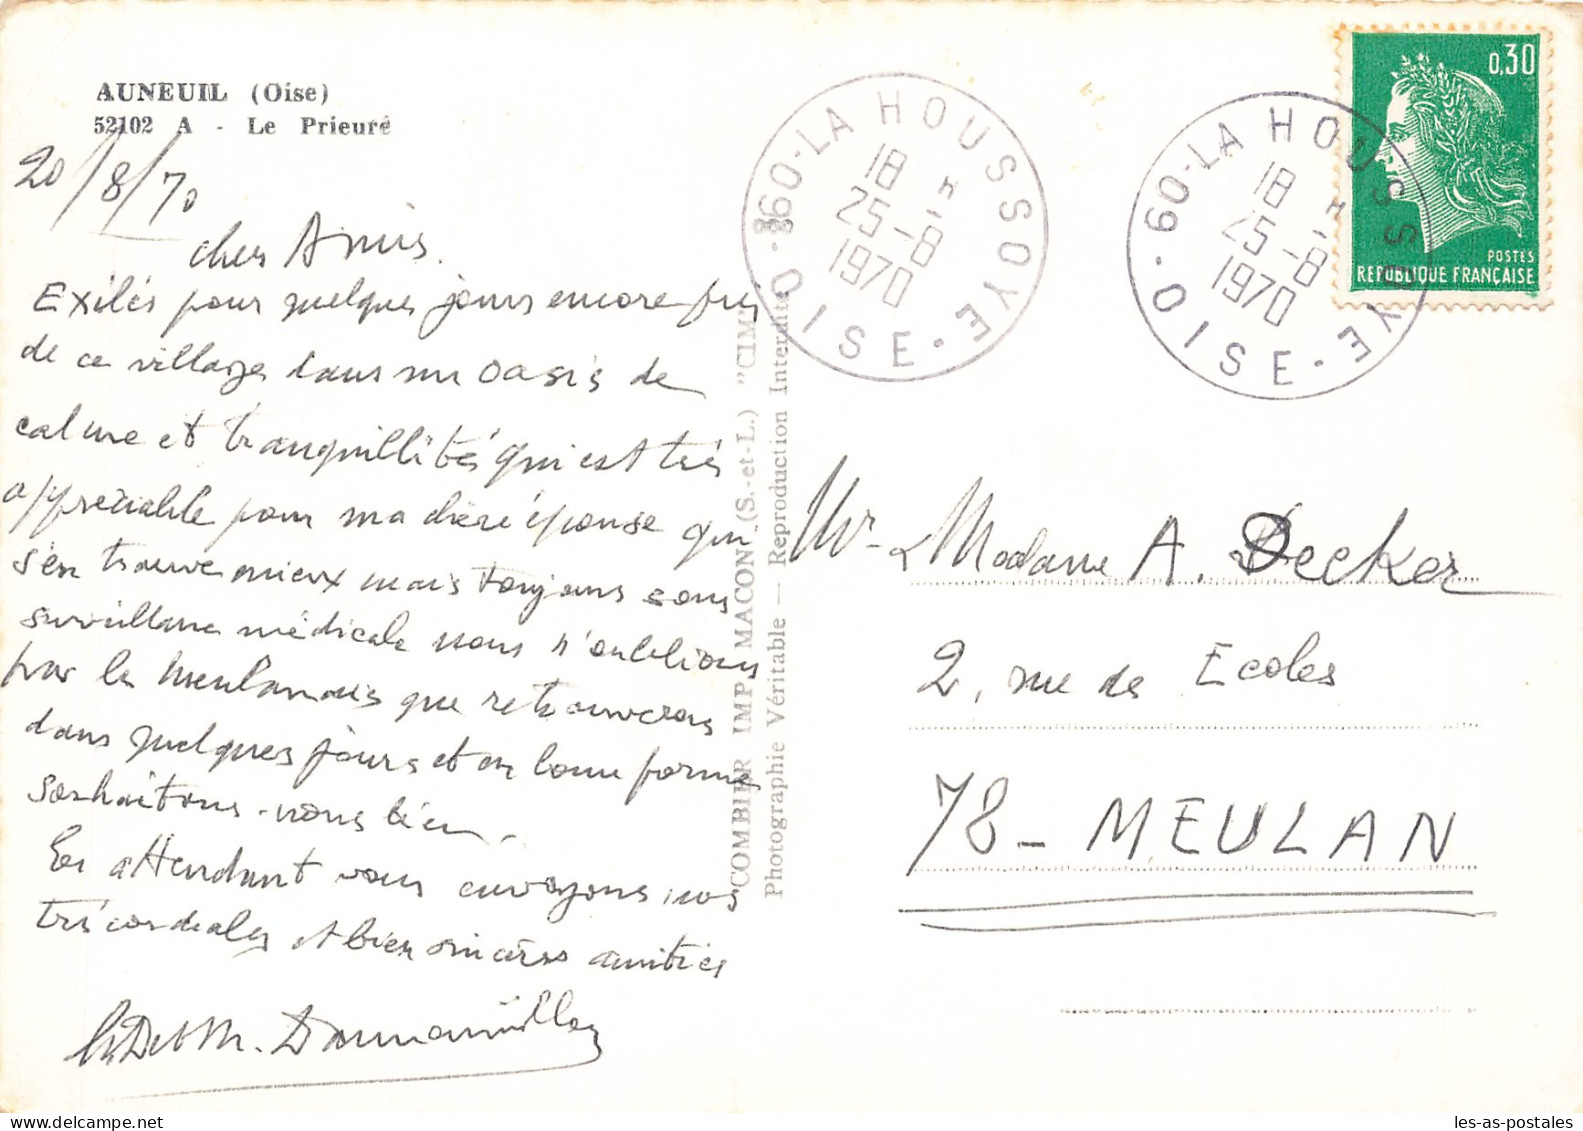 AUNEUIL (Oise)
52102 A - Le Prieuré
20/8/70
chers Amis.
Exilés pour quelques jours encore près
de ce village dans un oasis de
calme et tranquillités qui est très
appréciable pour ma chère épouse qui
s'en trouve mieux mais toujours sous
surveillance médicale nous n'oublions
pas les Meulanais que retrouverons
dans quelques jours et en bonne forme
souhaitons-nous bien.
En attendant vous envoyons nos
très cordiales et bien sincères amitiés
COMBIER IMP. MACON (S.-et-L.) "CIM"
Photographie Véritable — Reproduction Interdite
60-LA HOUSSOYE · OISE ·
18 H
25-8
1970
60-LA HOUSSOYE · OISE ·
18 H
25-8
1970
0,30
POSTES
REPUBLIQUE FRANÇAISE
Mr & Madame A. Decker
2, rue des Ecoles
78 - MEULAN
les-as-postales